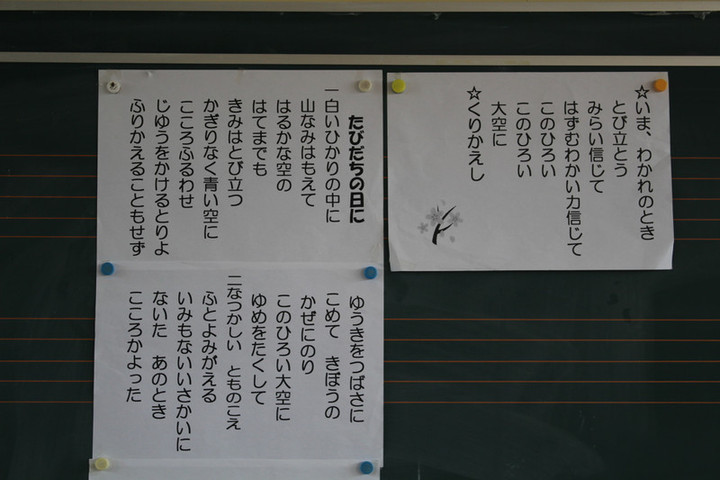 たびだちの日に
一白いひかりの中に
山なみはもえて
はるかな空の
はてまでも
きみはとび立つ
かぎりなく青い空に
こころふるわせ
じゆうをかけるとりよ
ふりかえることもせず
ゆうきをつばさに
こめて きぼうの
かぜにのり
このひろい大空に
ゆめをたくして
二なつかしい とものこえ
ふとよみがえる
いみもないいさかいに
ないた あのとき
こころかよった
☆いま、わかれのとき
とび立とう
みらい信じて
はずむわかい力信じて
このひろい
このひろい
大空に
☆くりかえし